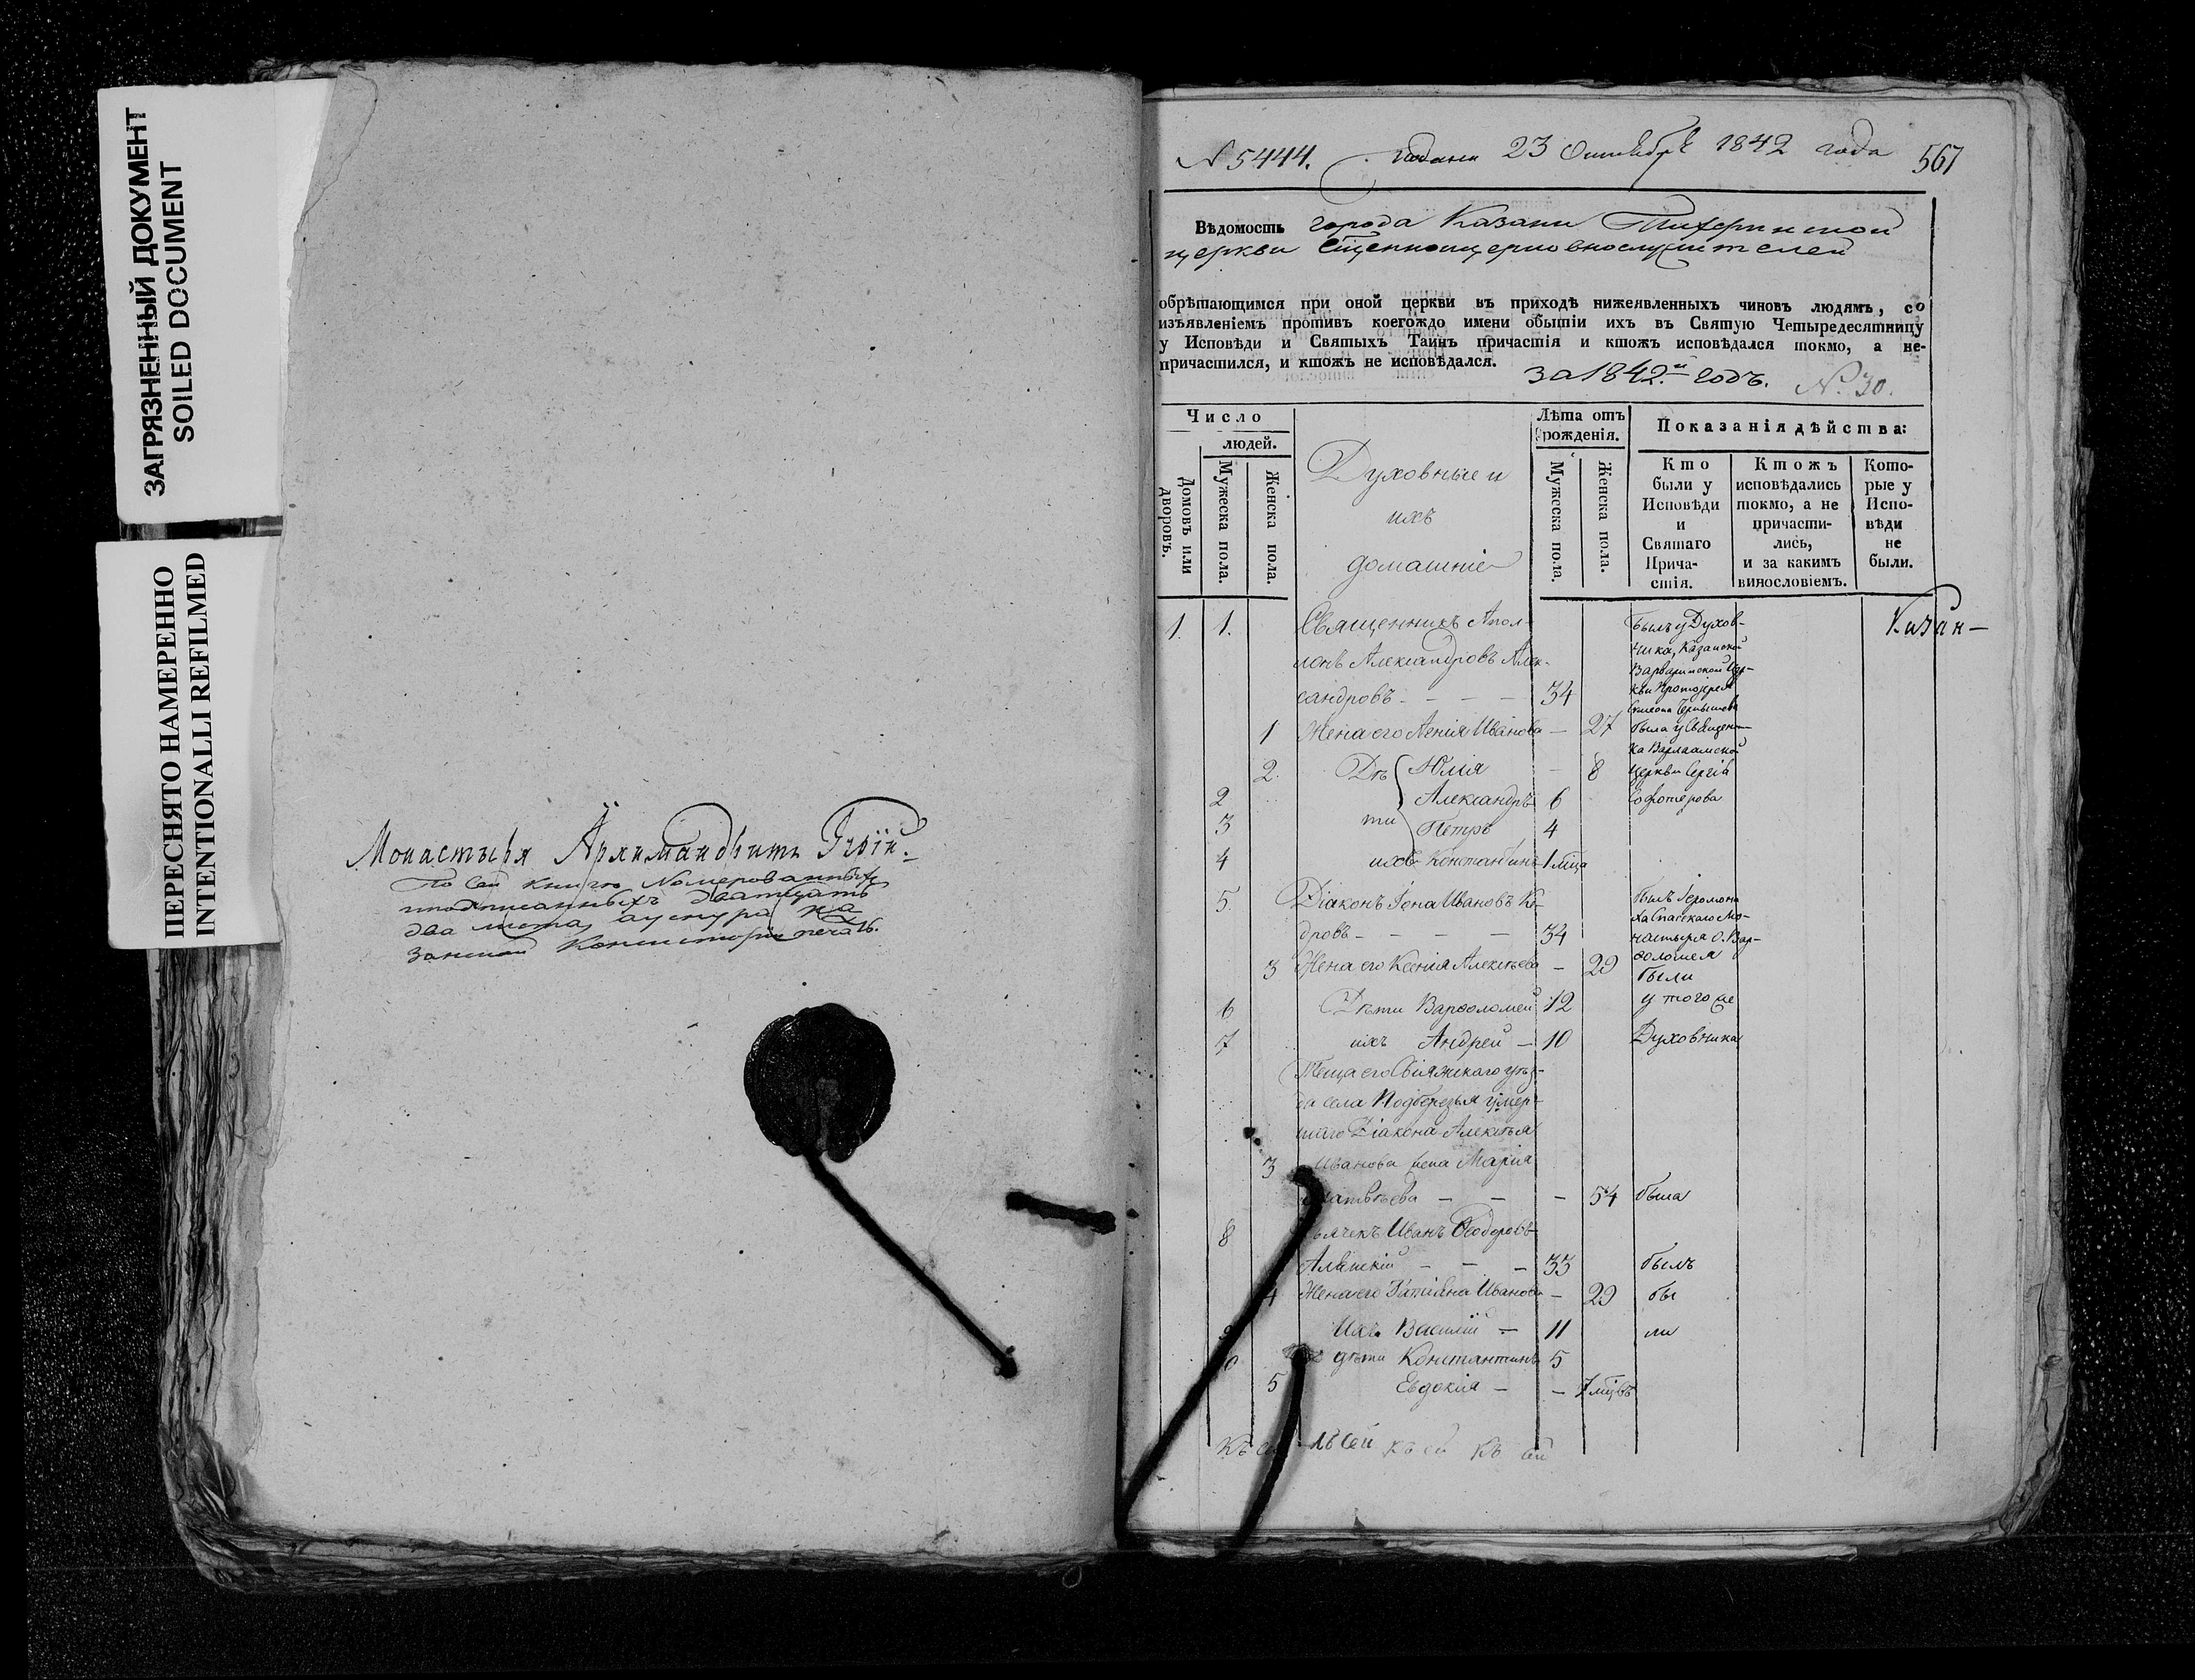 ЗАГРЯЗНЕННЫЙ ДОКУМЕНТ
SOILED DOCUMENT
ПЕРЕСНЯТО НАМЕРЕННО
INTENTIONALLI REFILMED
Монастыря Архимандритъ
По сей книгѣ Номерованныхъ
и подписанныхъ дватцать
два листа, а у снура Ка
занской Консисторіи печать.
N 5444. подана 23 Октября 1842 года 567
Вѣдомость города Казани Тихвинской
церкви Священноцерковнослужителей
обрѣтающимся при оной церкви въ приходѣ нижеявленныхъ чиновъ людямъ, со
изъявленіемъ противъ коегождо имени обытіи ихъ въ Святую Четыредесятницу
у Исповѣди и Святыхъ Таинъ причастія и ктожъ исповѣдался токмо, а не-
причастился, и ктожъ не исповѣдался.
за 1842й годъ. N. 30.
Число
людей.
Домовъ или дворовъ.
Мужеска пола.
Женска пола.
Духовные и
ихъ
домашніе
Лѣта отъ
рожденія.
Мужеска пола.
Женска пола.
Показанія дѣйства:
Кто
были у
Исповѣди
и
Святаго
Прича-
стія.
Ктожъ
исповѣдались
токмо, а не
причасти-
лись,
и за какимъ
винословіемъ.
Кото-
рые у
Испо-
вѣди
не
были.
1. 1. Священникъ Апол- Былъ у Духов- Казан-
лонъ Александровъ Алек- ника, Казанской
Варваринской Цер-
сандровъ - - - 34 кви Протоіерея
1 Жена его Ксенія Иванова - 27 была у Священни-
ка Варлаамской
2. Дѣ Юлія - 8 Церкви Сергія
2 Александръ 6
3 ти Петръ 4
4 ихъ Константинъ 1 мѣца
5. Діаконъ Іона Ивановъ Ке- былъ Іеромона
ха Спаскаго Мо-
дровъ - - - 34 настыря о. Вар-
3 Жена его Ксенія Алексѣева - 29 ѳоломея
были
6 Дѣти Варѳоломей 12 у того же
7 ихъ Андрей - 10 Духовника
Теща его Свіяжскаго уѣз-
да села Подберезья умер-
шаго Діакона Алексѣя
3 Иванова жена Марія
Матвѣева - - - 54 была
8 Дьячекъ Иванъ Ѳеодоровъ
- - - 33 былъ
4 Жена его Татіана Иванова - 29 бы
9 Ихъ Василій - 11 ли
10 дѣти Константинъ 5
5 Евдокія - - 7 мцвъ
Къ сей къ сей къ сей